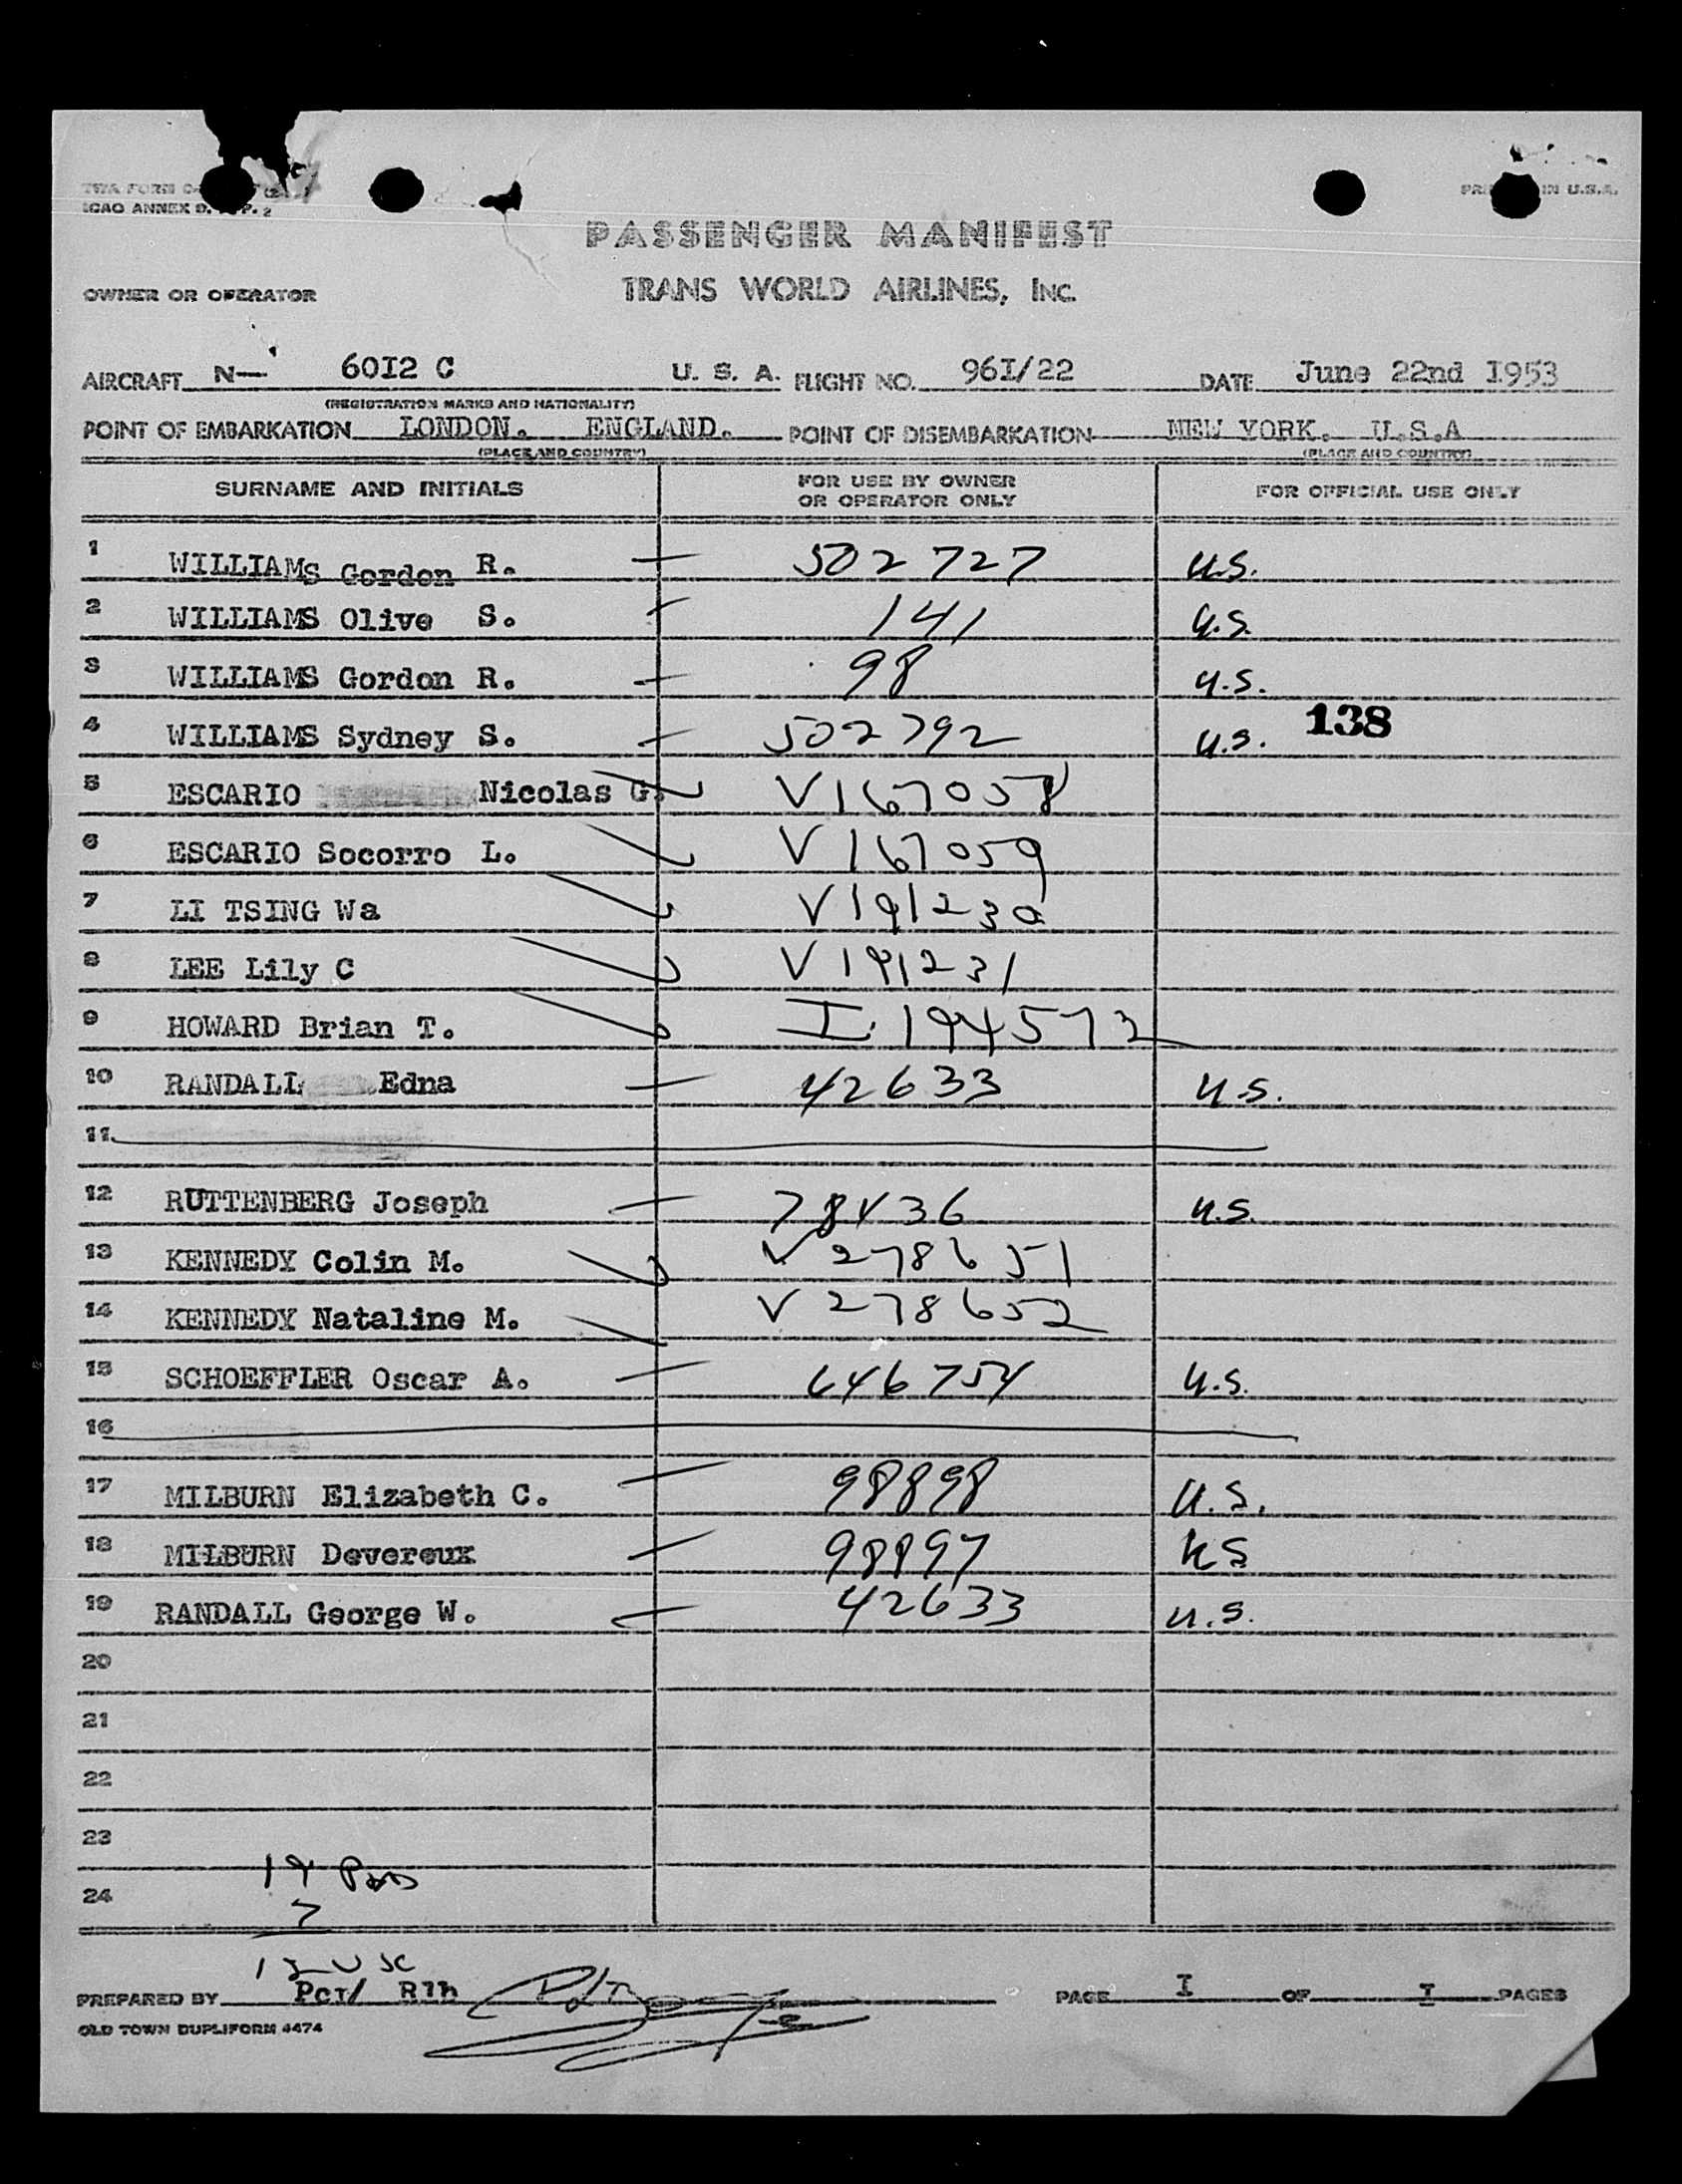 TWA FORM
ICAO ANNEX 9. P. 2
IN U.S.A.
PASSENGER MANIFEST
OWNER OR OPERATOR TRANS WORLD AIRLINES, INC.
AIRCRAFT N— 6OI2 C U. S. A. FLIGHT NO. 96I/22 DATE June 22nd I953
(REGISTRATION MARKS AND NATIONALITY)
POINT OF EMBARKATION LONDON. ENGLAND. POINT OF DISEMBARKATION NEW YORK. U.S.A
(PLACE AND COUNTRY) (PLACE AND COUNTRY)
SURNAME AND INITIALS FOR USE BY OWNER OR OPERATOR ONLY FOR OFFICIAL USE ONLY
1 WILLIAMS Gordon R. — 502727 U.S.
2 WILLIAMS Olive S. — 141 U.S.
3 WILLIAMS Gordon R. — 98 U.S.
4 WILLIAMS Sydney S. — 502792 U.S. 138
5 ESCARIO Nicolas G. V167058
6 ESCARIO Socorro L. V167059
7 LI TSING Wa V191230
8 LEE Lily C V191231
9 HOWARD Brian T. I.194572
10 RANDALL Edna — 42633 U.S.
11
12 RUTTENBERG Joseph — 78436 U.S.
13 KENNEDY Colin M. V278651
14 KENNEDY Nataline M. V278652
15 SCHOEFFLER Oscar A. — 646754 U.S.
16
17 MILBURN Elizabeth C. — 98898 U.S.
18 MILBURN Devereux — 98897 US
19 RANDALL George W. — 42633 U.S.
20
21
22
23
24
7
PREPARED BY PcI/ Rlh PAGE I OF I PAGES
OLD TOWN DUPLIFORM 4474